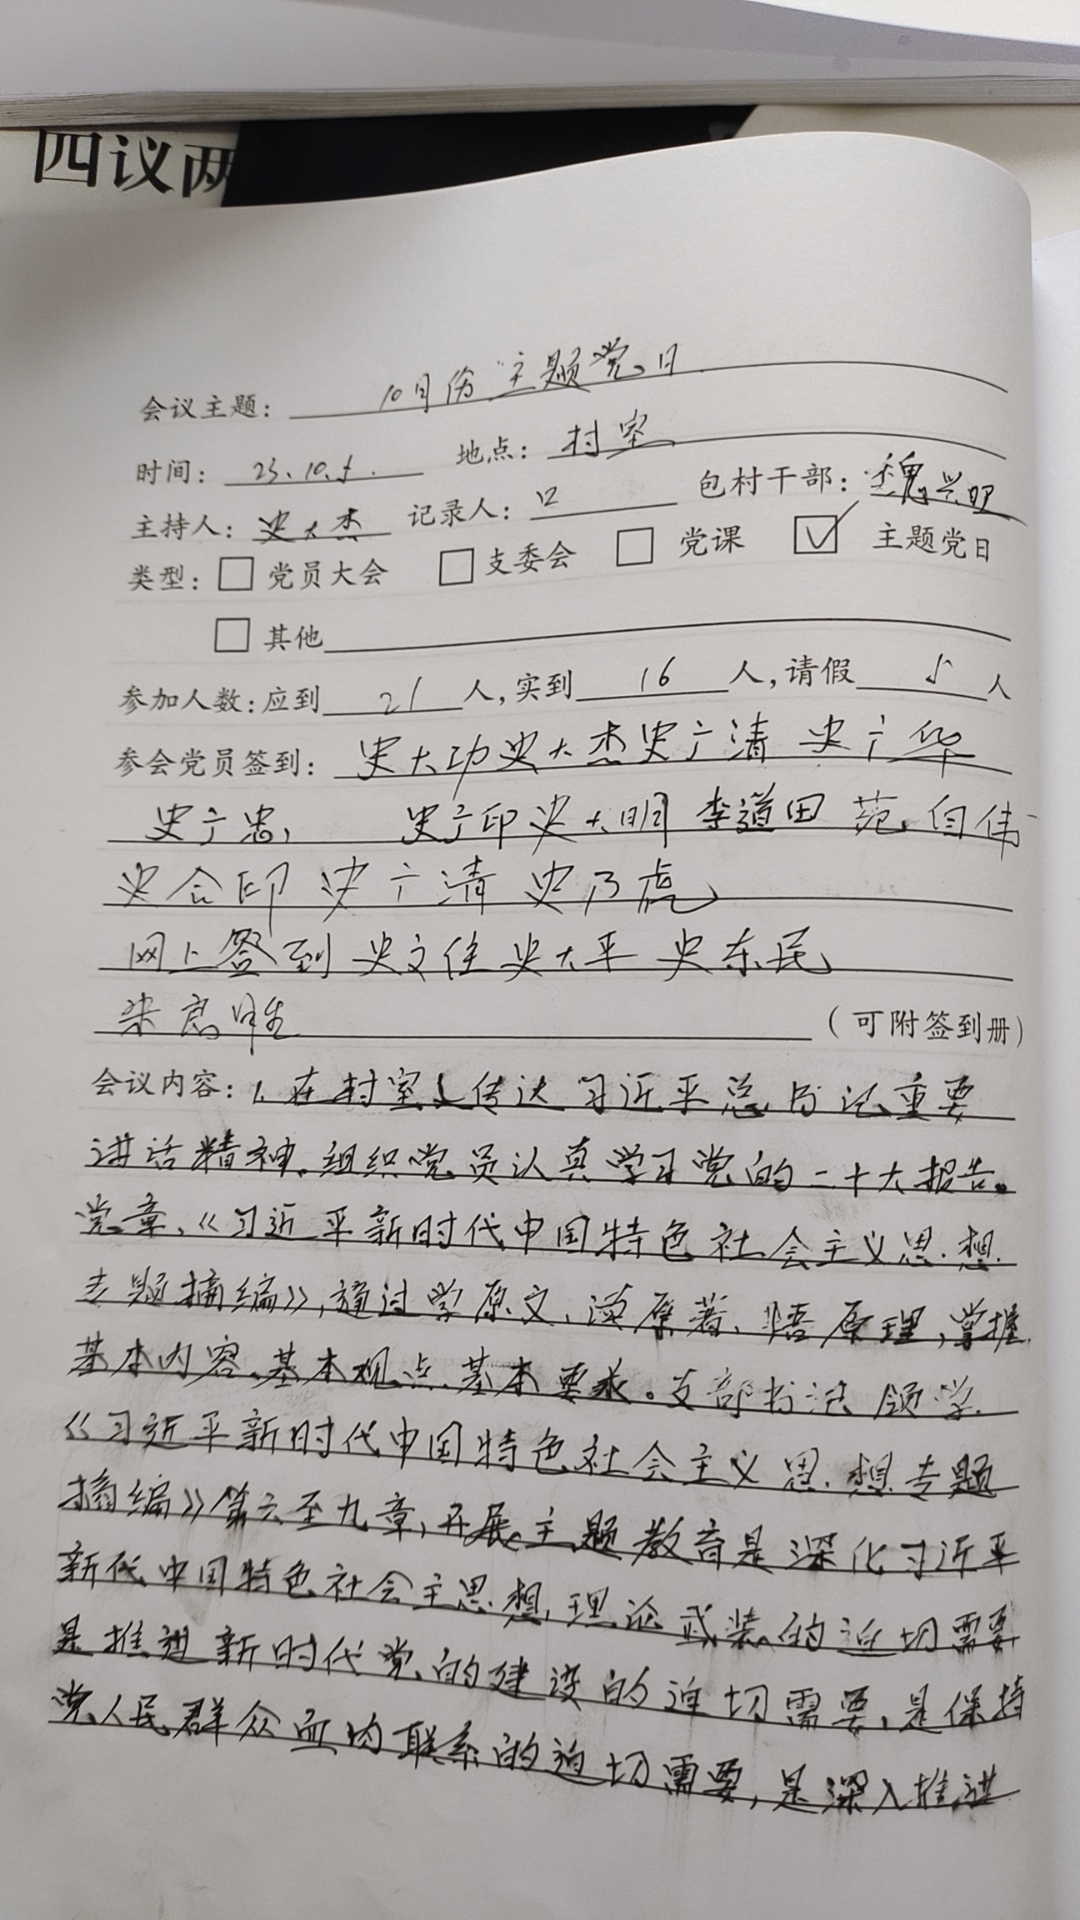 四议两
会议主题：10月份主题党日
时间：23.10.5. 地点：村室
主持人：史大杰 记录人： 包村干部：魏兴
类型：□党员大会 □支委会 □党课 ☑主题党日
□其他
参加人数：应到21人，实到16人，请假5人
参会党员签到：史大功史大杰史广清 史广华
史广忠 史广印史大明 李道田 苑自伟
史合印 史广清 史乃虎
网上签到 史文佳 史大平 史东民
（可附签到册）
会议内容：1.在村室传达习近平总书记重要
讲话精神。组织党员认真学习党的二十大报告。
党章、《习近平新时代中国特色社会主义思想
专题摘编》，通过学原文、读原著、悟原理，掌握
基本内容、基本观点、基本要求。支部书记领学
《习近平新时代中国特色社会主义思想专题
摘编》第六至九章，开展主题教育是深化习近平
新代中国特色社会主思想理论武装的迫切需要
是推进新时代党的建设的迫切需要，是保持
党人民群众血肉联系的迫切需要，是深入推进